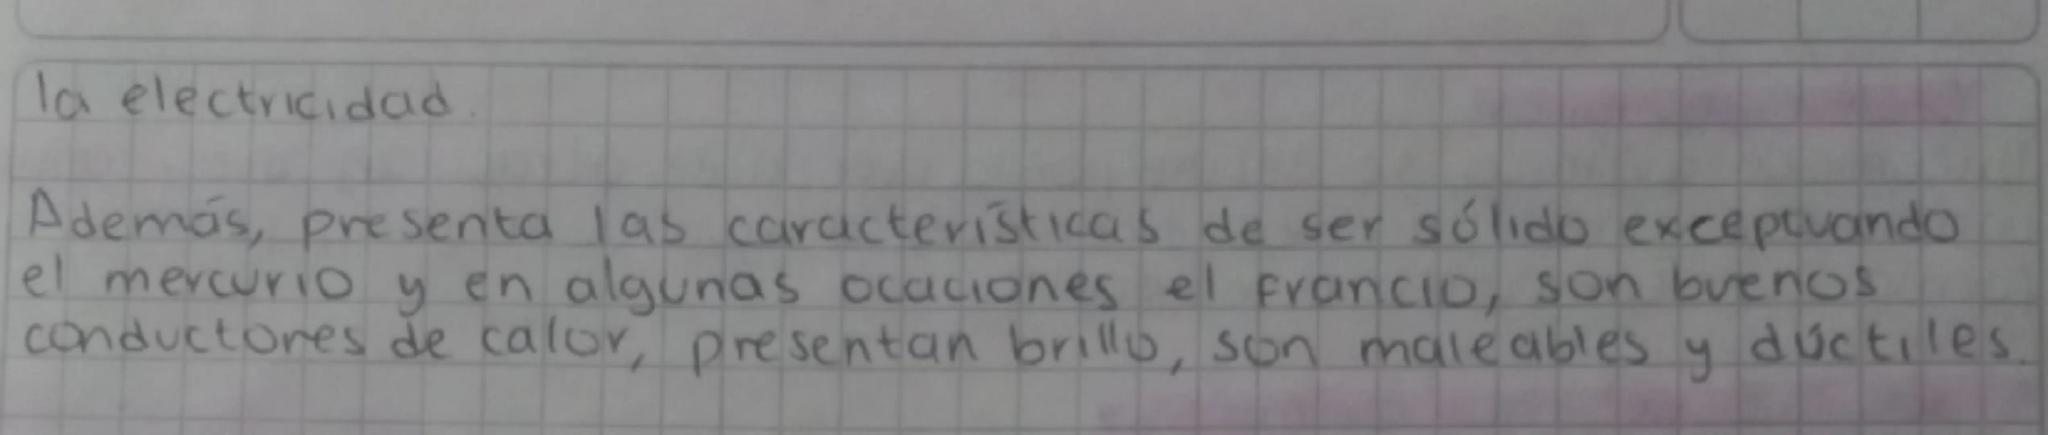 la electricidad.
Además, presenta las características de ser sólido exceptuando
el mercurio y en algunas ocaciones el Francio, son buenos
conductores de calor, presentan brillo, son maleables y dúctiles.